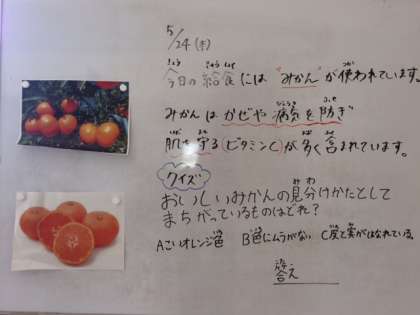 5/24(木)
今日の給食には"みかん"が使われています。
みかんはかぜや病気を防ぎ
肌を守る(ビタミンC)が多く含まれています。
クイズ
おいしいみかんの見分けかたとして
まちがっているものはどれ?
Aこいオレンジ色 B色にムラがない C皮と実がはなれている
答え